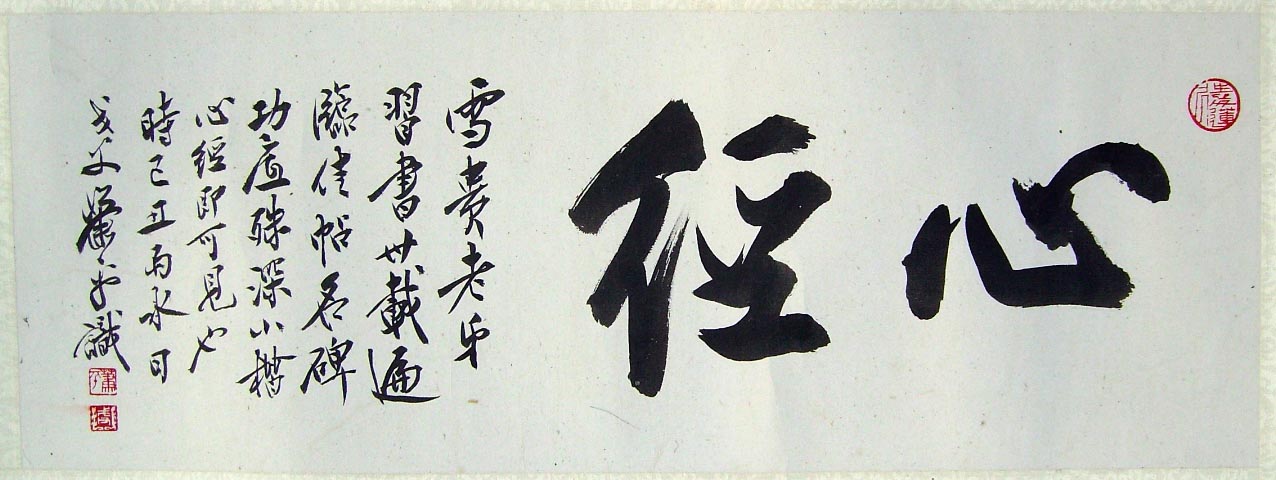 心經
雪貴老弟
習書卅載遍
臨佳帖名碑
功底殊深小楷
心經即可見也
時己丑雨水日
平識